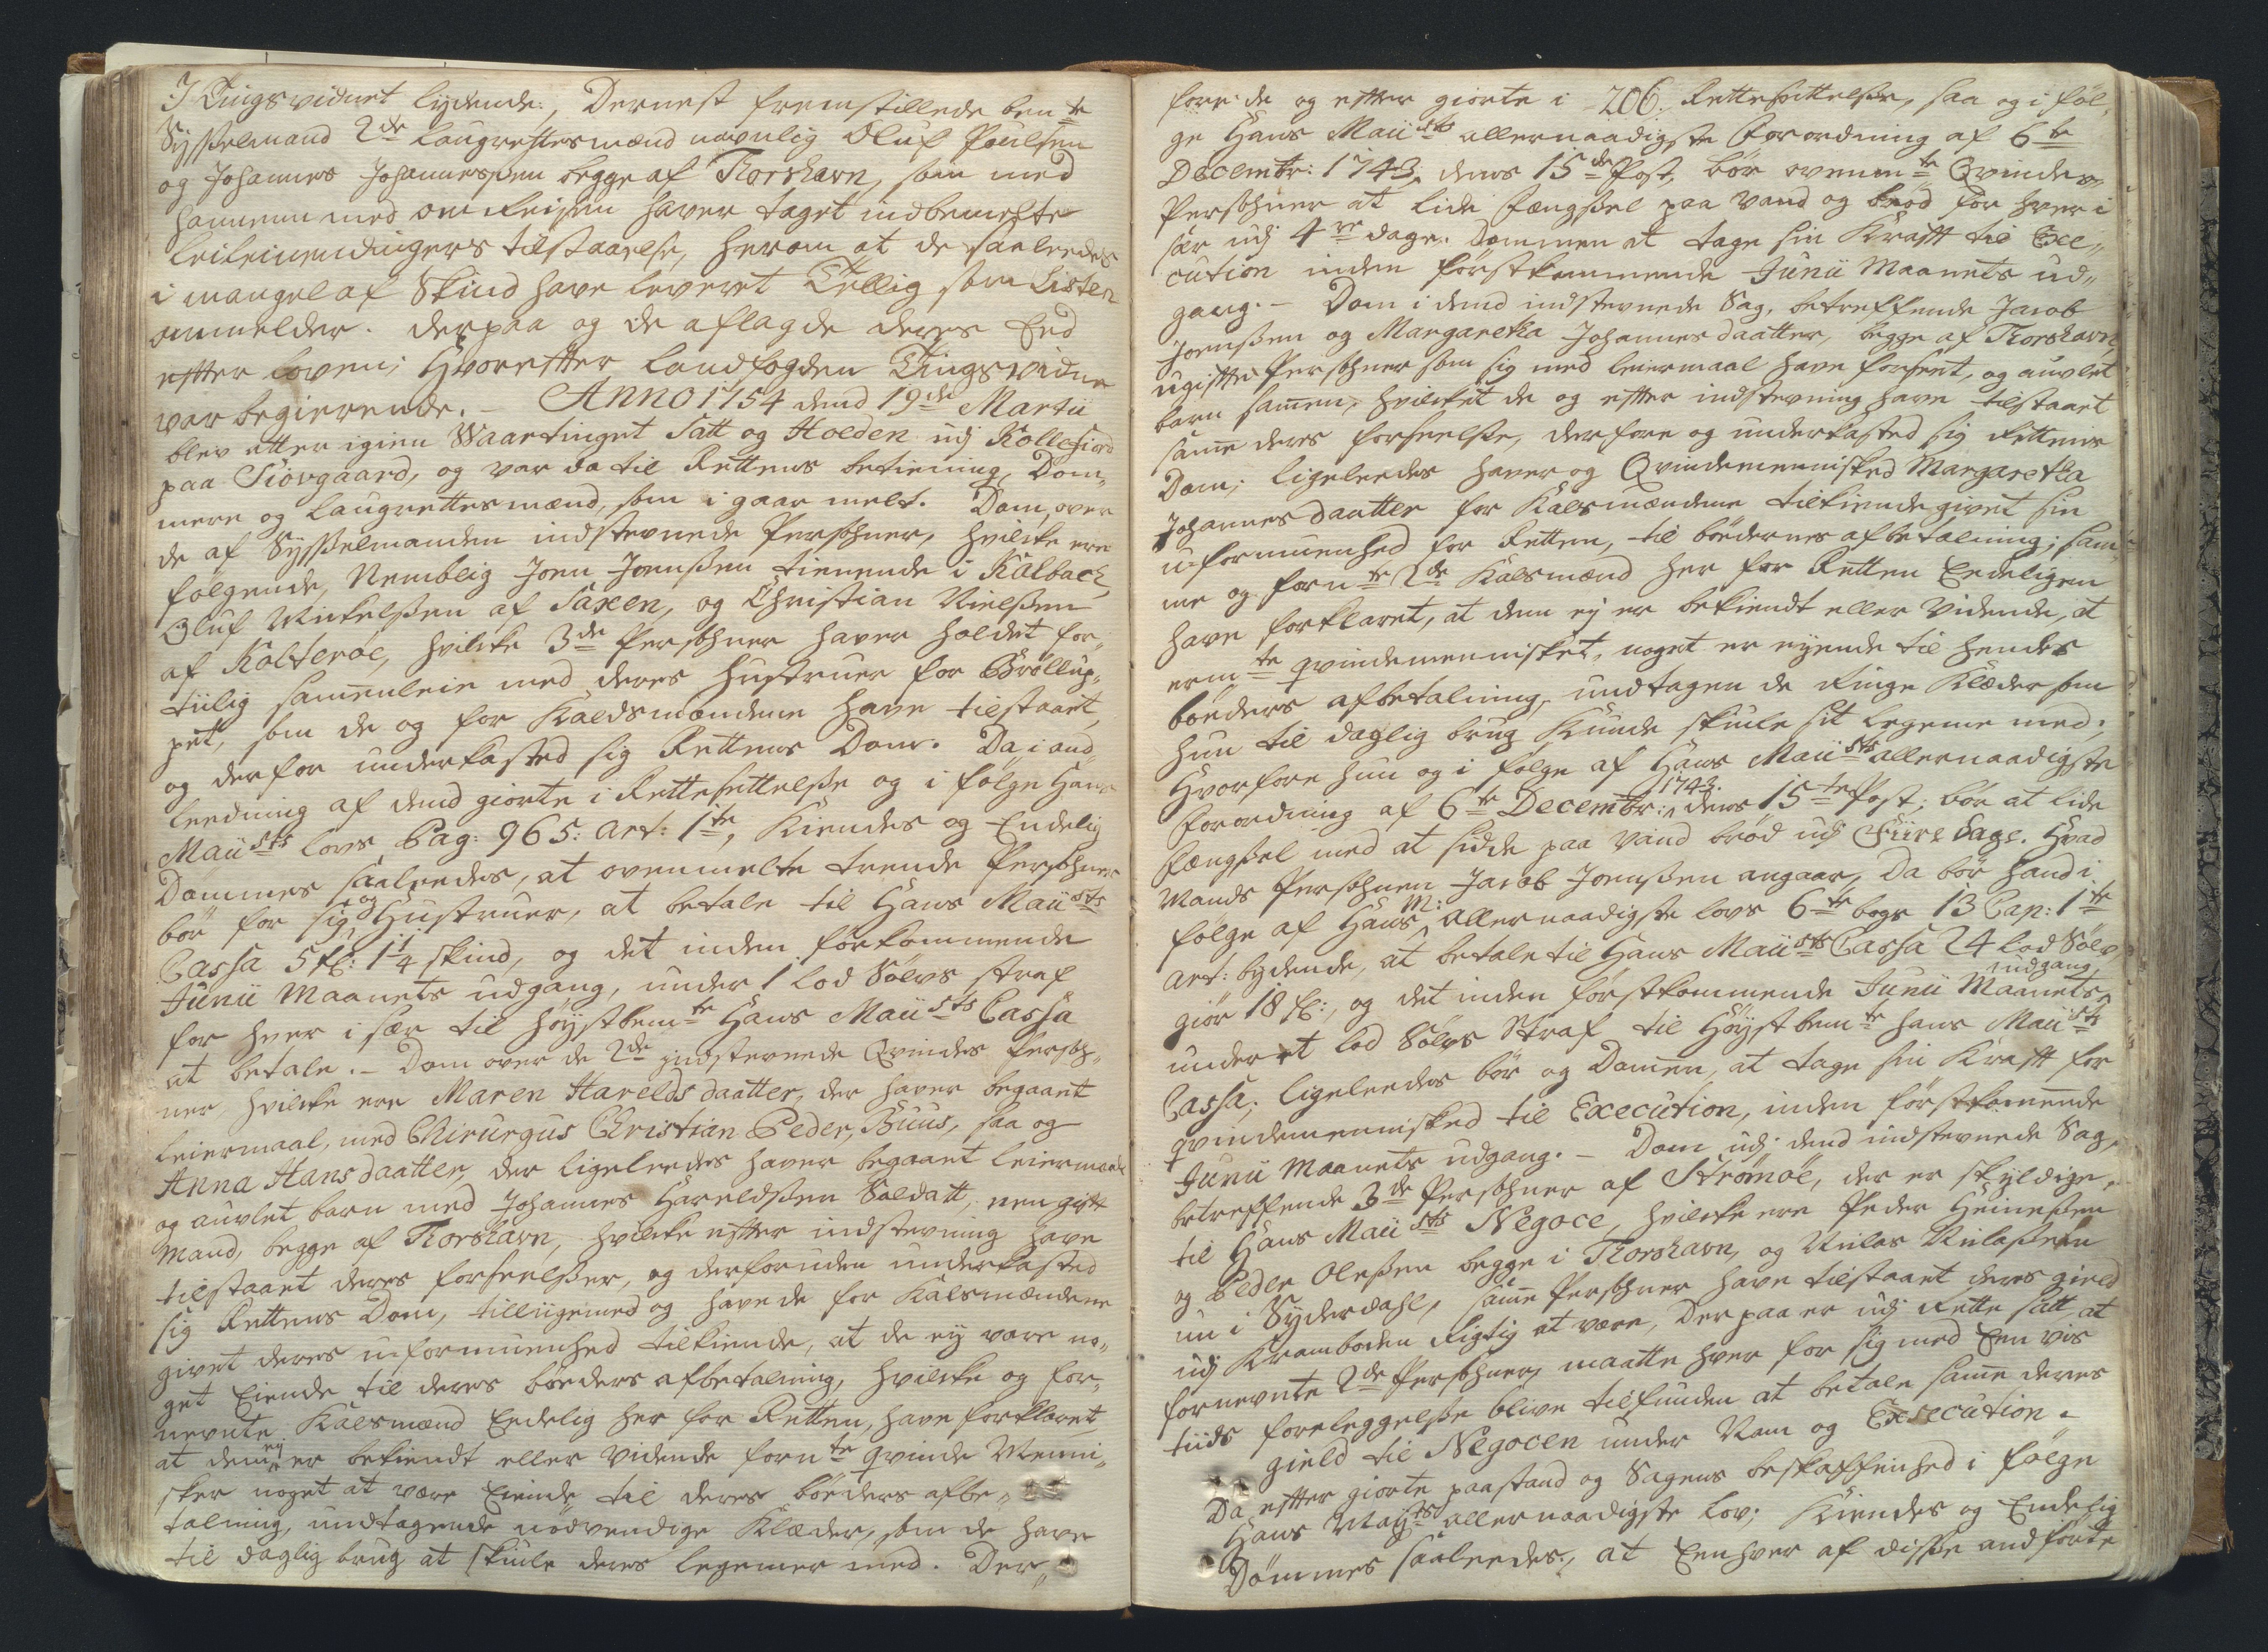 I Tingsvidnet lydende:, Dernest fremstillede bemte
Sysselmand 2de Laugrettesmænd navnlig Oluf Poulsen
og Johannes Johannessen begge af Thorshavn, som med
hannem med om Reisen haver taget indbemelte
Leilendingers tilstaaelse, herom at de saaleedes
i mangel af Skind have leveret Tællig som Listen
ommelder. Derpaa og de aflagde deres Eed
efter Loven; Hvorefter Landfogden Tingsvidne
var begierende. – Anno 1754 dend 19de Martii
blev atter igien Waartinget Satt og Holden udj Kollefiord
paa Siovgaard, og var da til Rettens betiening, Dom„
mere og Laugrettesmænd, som i gaar melt. Dom, over
de af Sysselmanden indstevnede Persohner, hvilcke ere
følgende, Nemblig Joen Joensen tienende i Kalbach,
Oluf Mickelsen af Saxen, og Christian Nielsen
af Kolterøe, hvilcke 3de Persohner haver holdet for„
tiilig sammenleie med deres Hustruer for Brøllup„
pet, som de og for Kaldsmændene have tilstaaet,
og derfor underkasted sig Rettens Dom. Da i and„
leedning af dend giorte i Rettesettelse og i følge Hans
Maiists Lovs Pag: 965: Art: 1te, Kiendes og Endelig
Dømmes saaleedes, at ovenmelte trende Persohner
bør for sig og Hustruer, at betale til Hans Maiists
Cassa 5 fl: 1 1/4 skind, og det inden førkommende
Junii Maanets udgang, under 1 Lod Sølvs straf
for hver i sær til høystbemte Hans Maiists Cassa
at betale. – Dom over de 2de indstevnede Qvindes Persoh„
ner, hvilcke ere Maren Harelds daatter, der haver begaaet
Leiermaal, med Chirurgus Christian Peder, Buus, saa og
Anna Hans daatter, der ligeleedes haver begaaet Leiermaal
og auvlet barn med Johannes Hareldsen Soldatt, een gift
Mand, begge af Thorshavn, hvilcke efter indstevning have
tilstaaet deres forseelser, og derforuden underkasted
sig Rettens Dom, tilliigemed og have de for Kalsmændene
givet deres uformuenhed tilkiende, at de ey vare no„
get Eiende til deres bøeders afbetalning, hvilcke og for„
nevnte Kalsmænd Eedelig her for Retten, have forklaret
at dem ey er bekiendt eller vidende fornte qvinde Menni„
sker noget at være Eiende til deres bøeders afbe„
talning, undtagende nødvendige Klæder, som de have
til daglig brug at skiule deres legemer med. Der„
206.
fore de og efter giorte i Rettesettelse, saa og i føl„
ge Hans Maiists allernaadigste Forordning af 6te
Decembr: 1743, dens 15de Post, bør ovenmte Qvindes
Persohner at lide Fængsel paa Vand og brød for hver i
sær udj 4re dage. Dommen at tage sin Krafft til Exe„
cution inden førstkommende Junii Maanets ud„
gang. – Dom i dend indstevnede Sag, betreffende Jacob
Joensen og Margaretha Johannes daatter, begge af Thorshavn,
ugifte Persohner som sig med Leiermaal have forseet, og auvlet
barn sammen, hvilcket de og efter indstevning have tilstaaet
samme deres forseelse, derfore og underkasted sig Rettens
Dom; Ligeleedes haver og Qvindemennisked Margaretha
Johannes daatter for Kalsmændene tilkiendegivet sin
u-formuenhed for Retten, til bøedernes afbetalning; sam„
me og fornte 2de Kalsmænd her for Retten Eedeligen
have forklaret, at dem ey er bekiendt eller vidende, at
ermte qvindemennisket, noget er eyende til hendes
bøeders afbetalning, undtagen de Ringe Klæder som
hun til daglig brug kunde skiule sit legeme med;
Hvorfore hun og i følge af Hans Maiists allernaadigste
Forordning af 6te Decembr: 1743. dens 15te Post; bør at lide
Fængsel med at sidde paa Vand brød udj Fiire Dage. Hvad
Mands Persohnen Jacob Joensen angaar, Da bør hand i
følge af Hans M: allernaadigste Lovs 6te bogs 13 Cap: 1te
Art: bydende, at betale til Hans Maiists Cassa 24 Lod Sølv,
giør 18 fl:, og det inden førstkommende Junii Maanets udgang,
under et Lod Sølvs Straf til Høystbemte Hans Maiists
Cassa; Ligeleedes bør og Dommen, at tage sin Krafft for
qvindemennisked til Execution, inden førstkommende
Junii Maanets udgang. – Dom udj dend indstevnede Sag,
betreffende 3de Persohner af Strømøe, der er skyldige
til Hans Maiists Negoce, hvilcke ere Peder Heinesen
og Peder Olesen begge i Thorshavn, og Niclas Niclasen
nu i Syderdahl, samme Persohner have tilstaaet deres gield
udj Kramboden Rigtig at være, Derpaa er udj Rette satt at
fornevnte 2de Persohner, maatte hver for sig med Een vis
tiids foreleggelse blive tilfunden at betale samme deres
gield til Negocen under Nam og Execution.
Da efter giorte paastand og Sagens beskaffenhed i følge
Hans Mayts allernaadigste Lov; Kiendes og Endelig
Dømmes saaleedes, at Eenhver af disse andførte